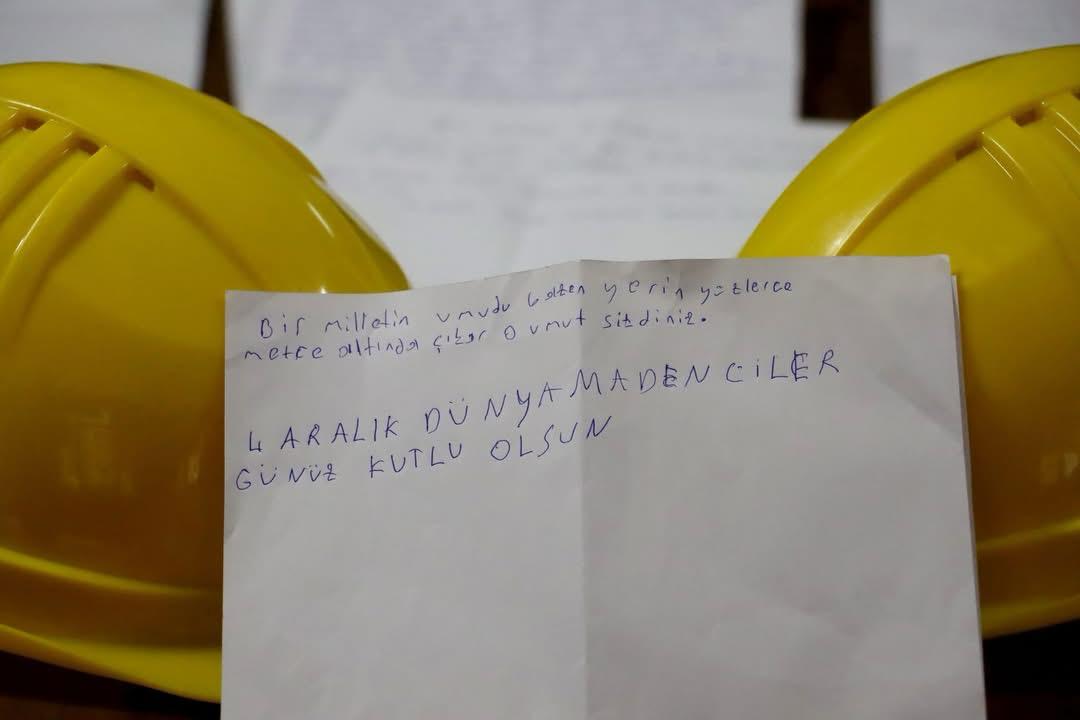 Bir milletin umudu bazen yerin yüzlerce
metre altında çıkar O umut sizdiniz.
4 ARALIK DÜNYA MADENCİLER
GÜNÜZ KUTLU OLSUN